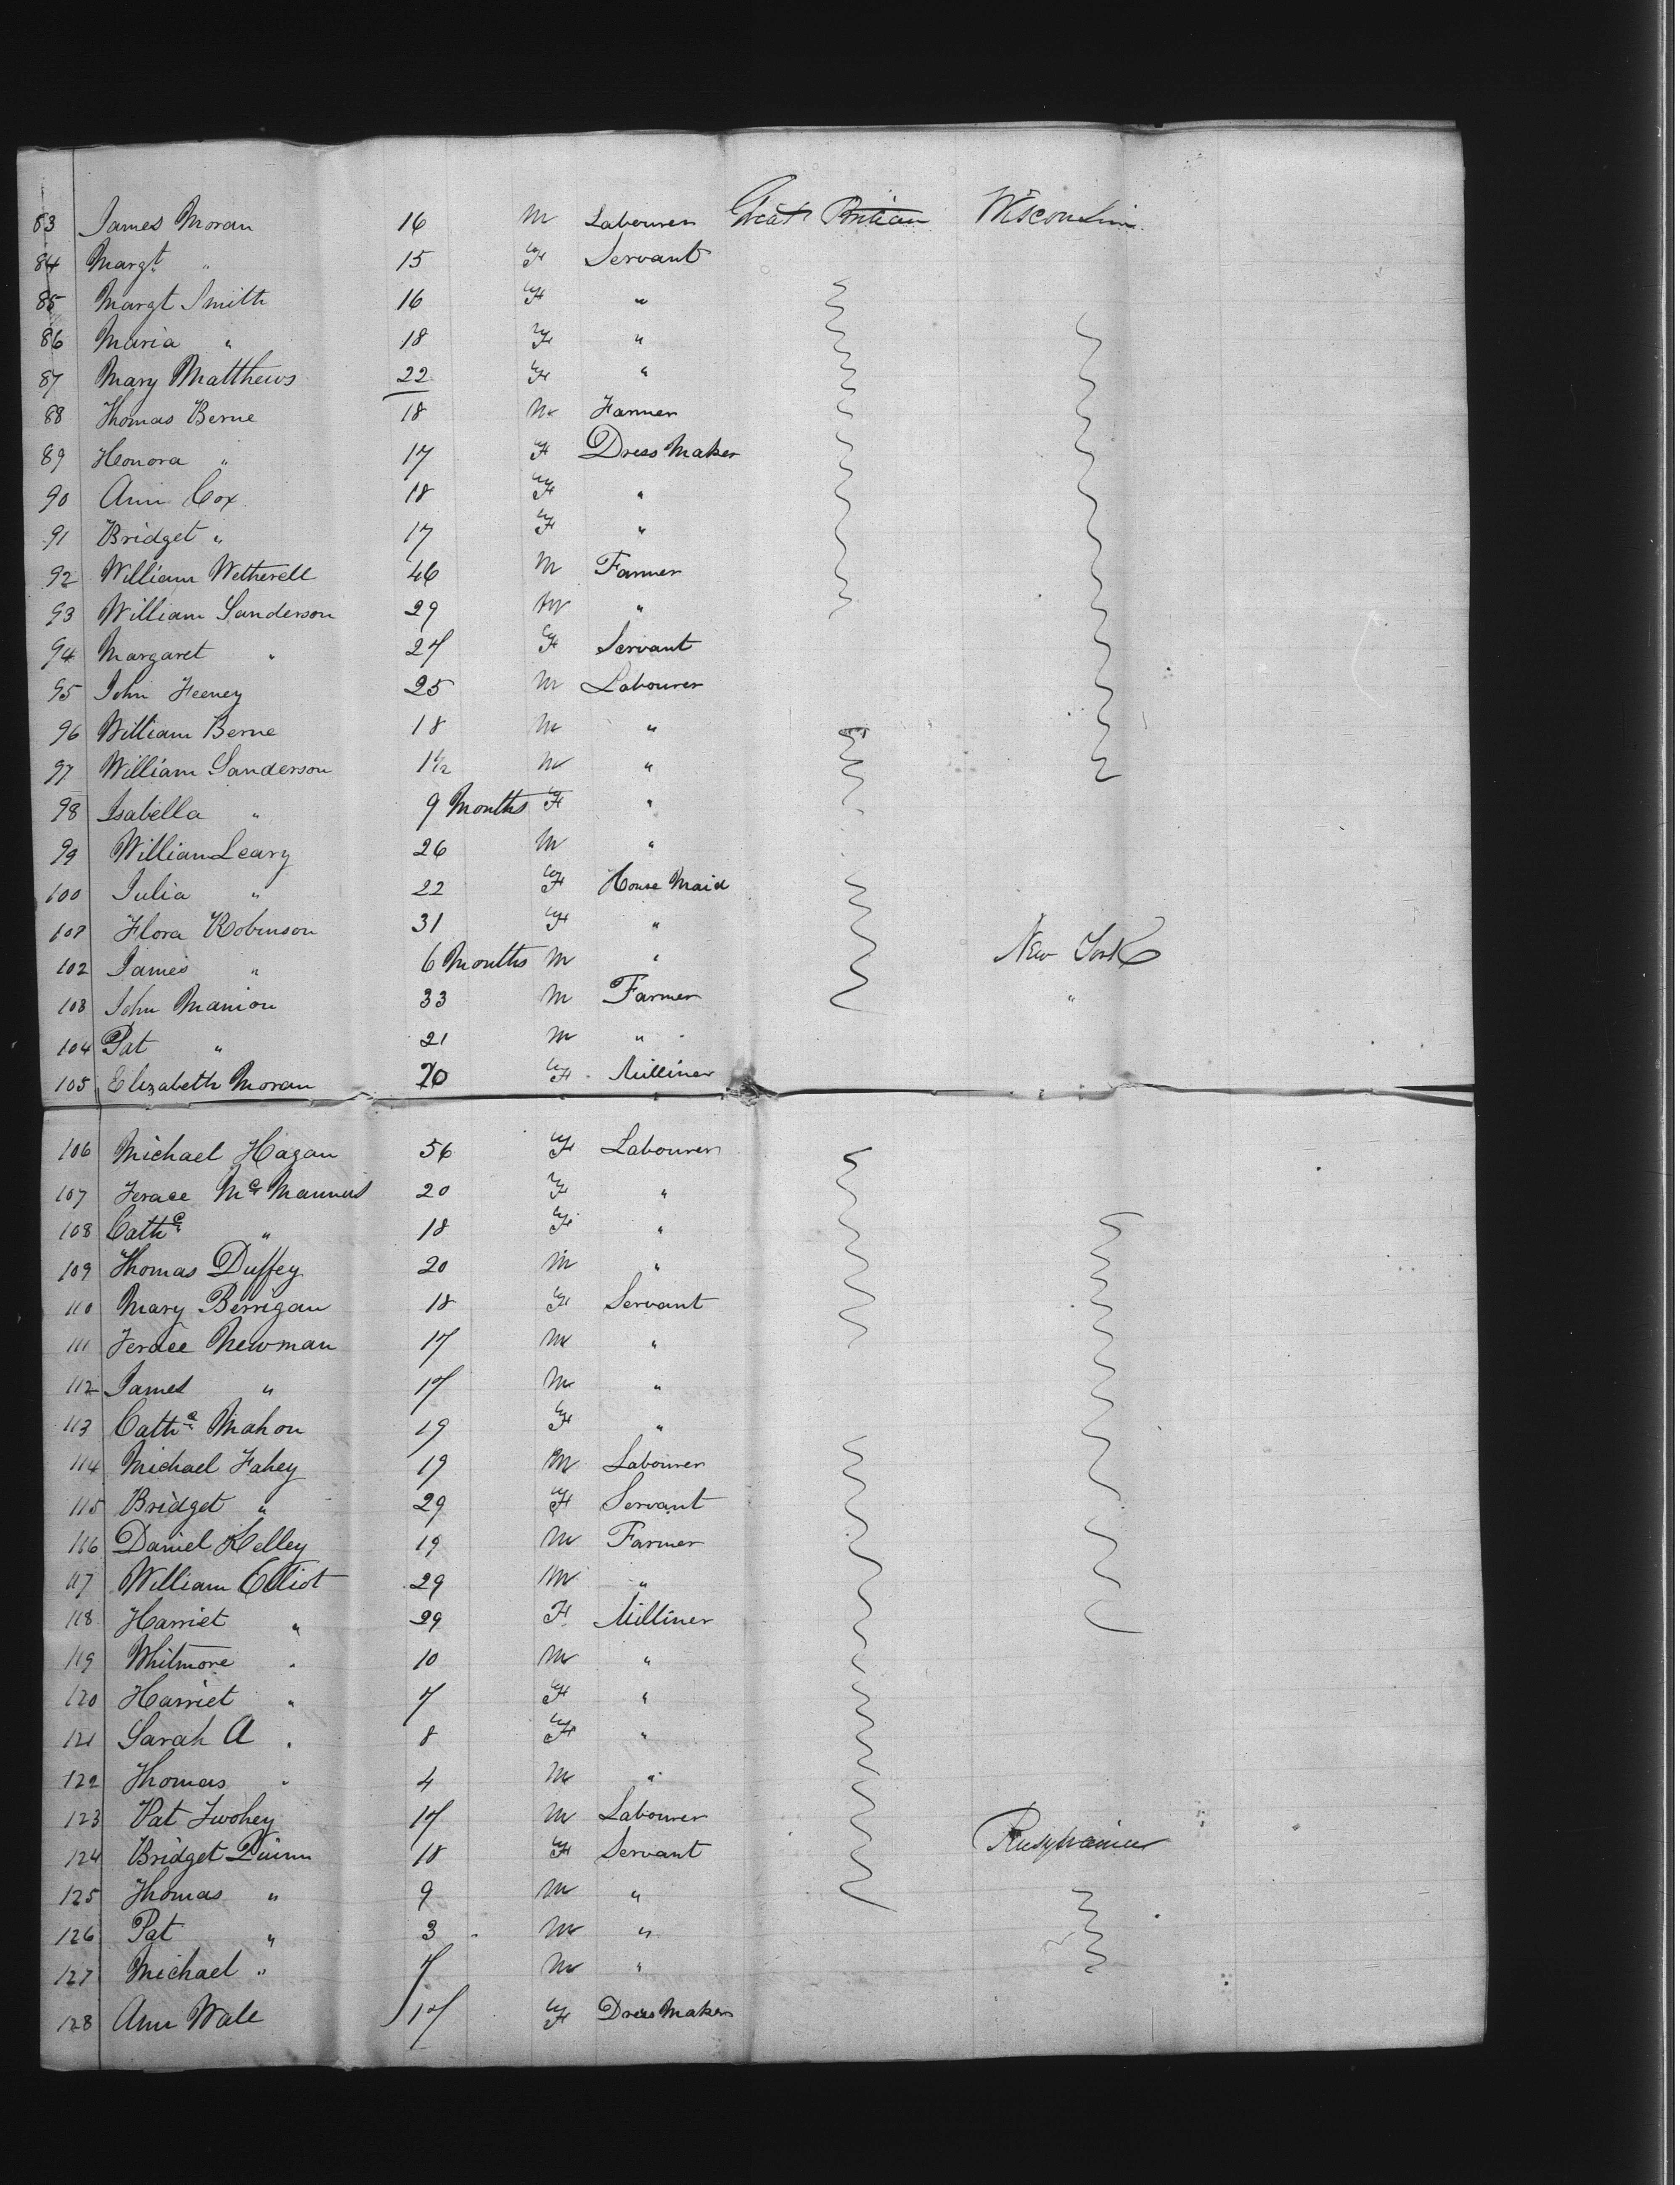 83 James Moran 16 M Labourer Great Britian Wisconsin
84 Margt " 15 F Servant
85 Margt Smith 16 F "
86 Maria " 18 F "
87 Mary Matthews 22 F "
88 Thomas Berne 18 M Farmer
89 Honora " 17 F Dress Maker
90 Ann Cox 18 F "
91 Bridget " 17 F "
92 William Wetherell 46 M Farmer
93 William Sanderson 29 M "
94 Margaret " 27 F Servant
95 John Feeney 25 M Labourer
96 William Berne 18 M "
97 William Sanderson 1½ M "
98 Isabella " 9 Months F "
99 William Leary 26 M "
100 Julia " 22 F House Maid
101 Flora Robinson 31 F "
102 James " 6 Months M " New York
103 John Manion 33 M Farmer "
104 Pat " 21 M "
105 Elizabeth Moran 20 F Milliner
106 Michael Hagan 56 F Labourer
107 Terace McMannus 20 F "
108 Cathe " 18 F "
109 Thomas Duffey 20 M "
110 Mary Berrigan 18 F Servant
111 Terace Newman 17 M "
112 James " 17 M "
113 Cathe Mahon 19 F "
114 Michael Fahey 19 M Labourer
115 Bridget " 29 F Servant
116 Daniel Kelley 19 M Farmer
117 William Elliot 29 M "
118 Harriet " 29 F Milliner
119 Whitmore " 10 M "
120 Harriet " 7 F "
121 Sarah A " 8 F "
122 Thomas " 4 M "
123 Pat Twohey 17 M Labourer
124 Bridget Quinn 18 F Servant
125 Thomas " 9 M "
126 Pat " 3 M "
127 Michael " 7 M "
128 Ann Wale 17 F Dress Maker